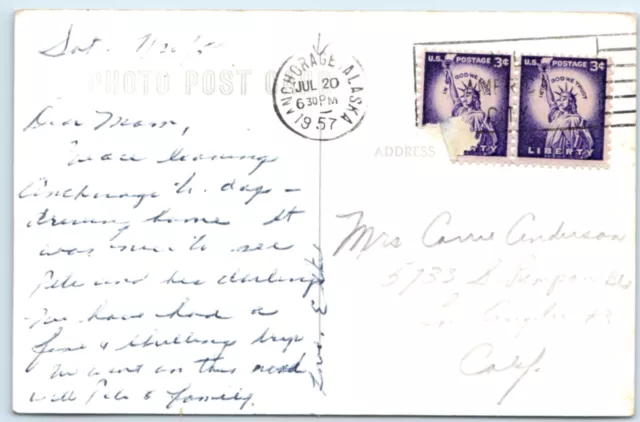 Sat. 7/20/57
PHOTO POST CARD
Dear Mom,
We are leaving
Anchorage to day -
driving home It
was nice to see
Pete and his darlings
We have had a
fine & thrilling trip
We went on this road
with Pete & family.
Love
ANCHORAGE, ALASKA
JUL 20
6 30 PM
1957
U.S. POSTAGE 3¢
IN GOD WE TRUST
LIBERTY
U.S. POSTAGE 3¢
IN GOD WE TRUST
LIBERTY
ADDRESS
Mrs Carrie Anderson
5733 S
Los Angeles
Calif.